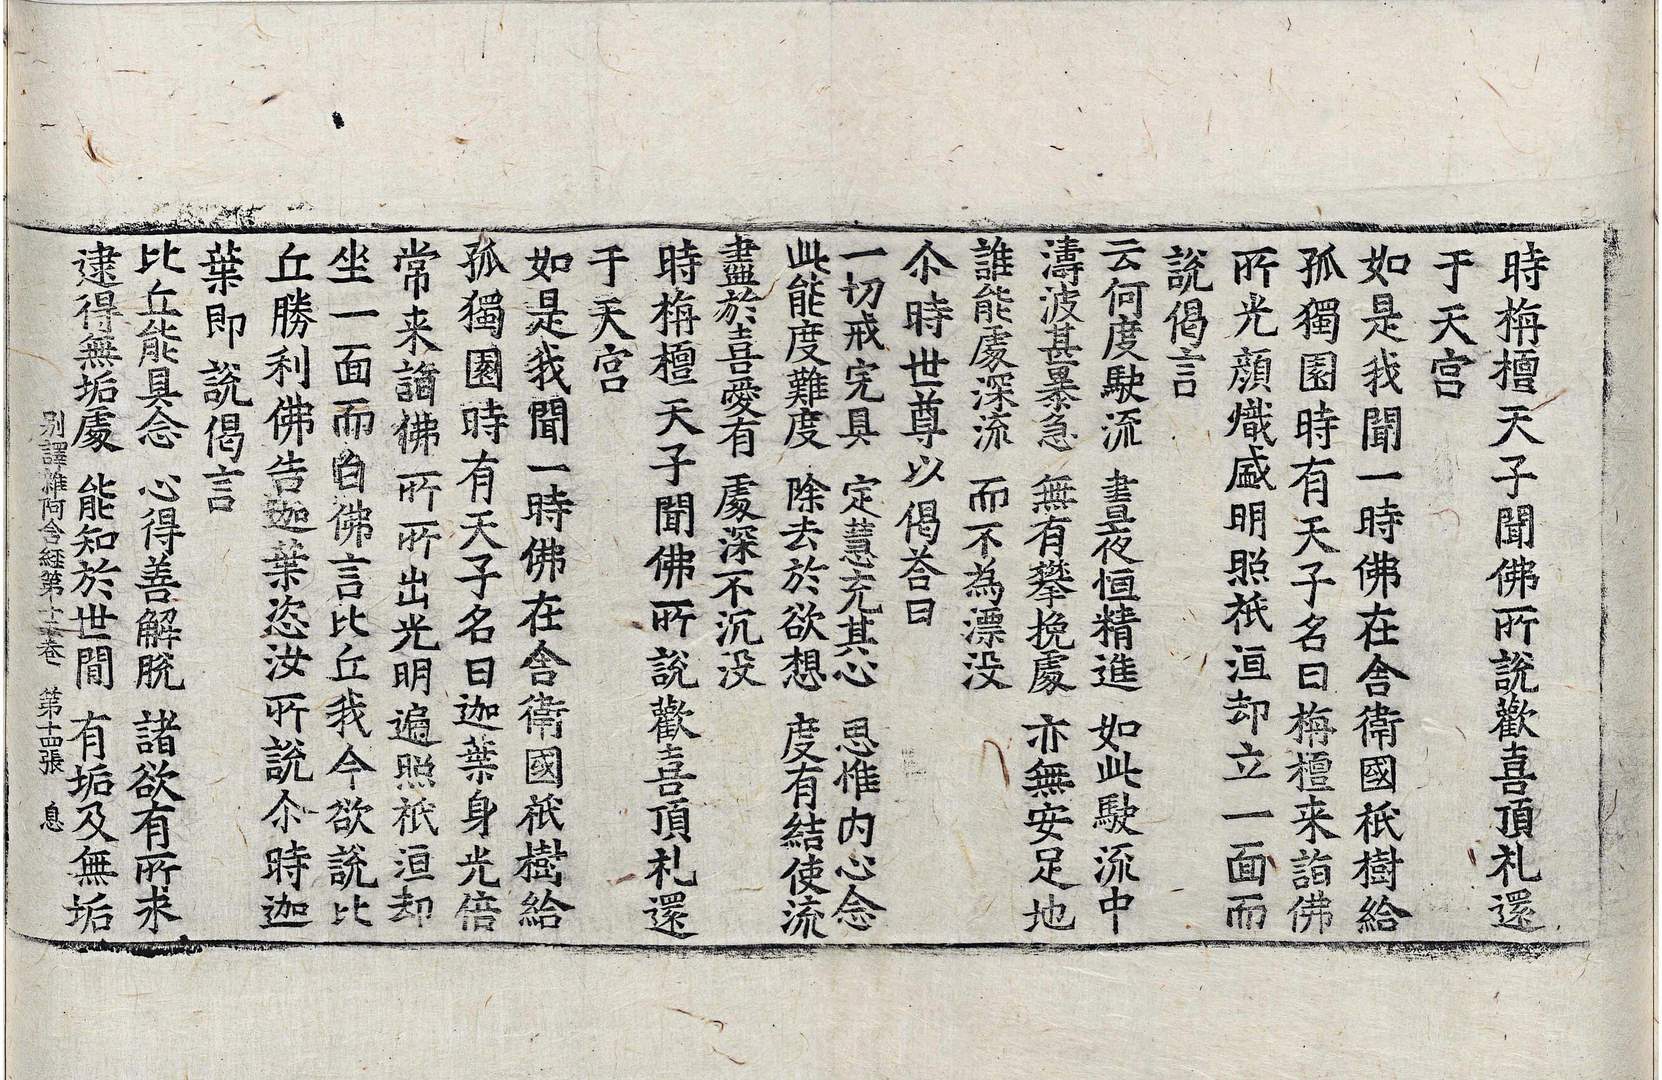 時栴檀天子聞佛所說歡喜頂礼還
于天宮
如是我聞一時佛在舍衛國祇樹給
孤獨園時有天子名曰栴檀来詣佛
所光顏熾盛明照祇洹却立一面而
說偈言
云何度駛流　晝夜恒精進　如此駛流中
濤波甚暴急　無有攀挽處　亦無安足地
誰能處深流　而不為漂没
尒時世尊以偈荅曰
一切戒完具　定慧充其心　思惟内心念
此能度難度　除去於欲想　度有結使流
盡於喜愛有　處深不沉没
時栴檀天子聞佛所說歡喜頂礼還
于天宮
如是我聞一時佛在舍衛國祇樹給
孤獨園時有天子名曰迦葉身光倍
常来詣佛所所出光明遍照祇洹却
坐一面而白佛言比丘我今欲說比
丘勝利佛告迦葉恣汝所說尒時迦
葉即說偈言
比丘能具念　心得善解脫　諸欲有所求
逮得無垢處　能知於世間　有垢及無垢
別譯雜阿含經第十五卷　第十四張　息